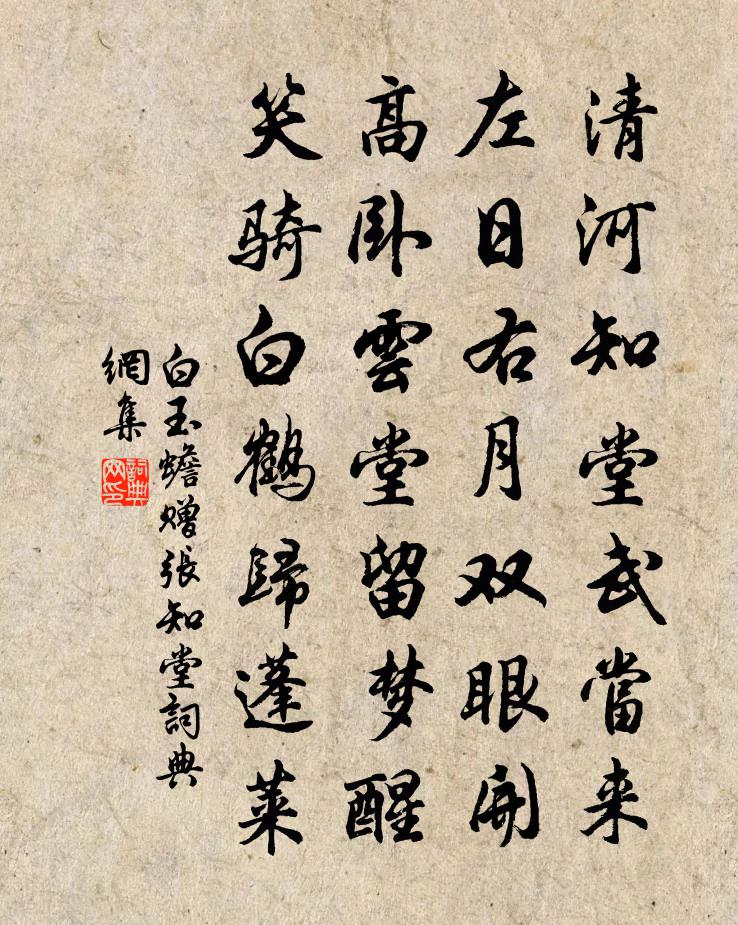 清河知堂武當来
左日右月双眼開
高卧雲堂留梦醒
笑骑白鶴歸蓬莱
白玉蟾赠張知堂詞典
網集
詞典
网印